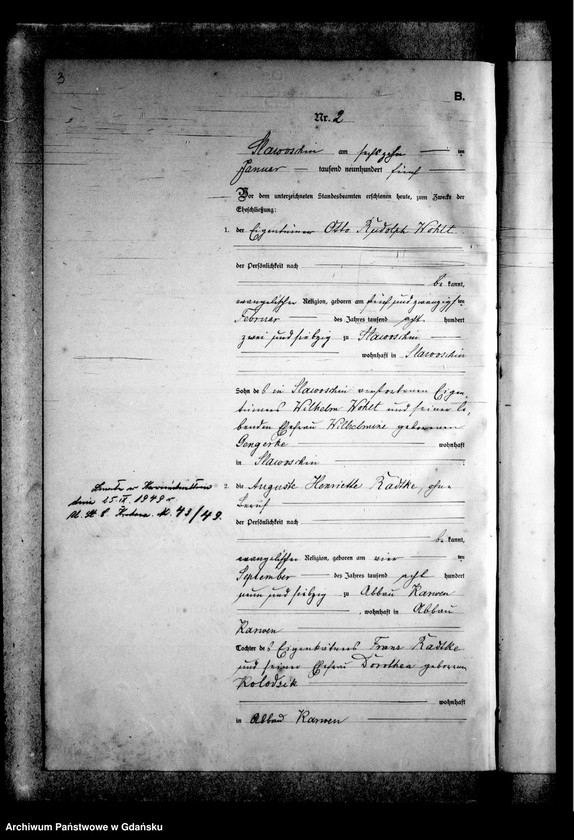 3
B.
Nr. 2
Slawoschin am sechszehn ten
Januar tausend neunhundert fünf
Vor dem unterzeichneten Standesbeamten erschienen heute, zum Zwecke der
Eheschließung:
1. der Eigentümer Otto Rudolph Wohlt
der Persönlichkeit nach
be kannt,
evangelischer Religion, geboren am fünf und zwanzigsten
Februar des Jahres tausend acht hundert
zwei und siebzig zu Slawoschin
wohnhaft in Slawoschin
Sohn des in Slawoschin verstorbenen Eigen-
tümers Wilhelm Wohlt und seiner le-
benden Ehefrau Wilhelmine geborenen
Gengerke wohnhaft
in Slawoschin
2. die Auguste Henriette Radtke, ohne
Beruf
der Persönlichkeit nach
be kannt,
evangelischer Religion, geboren am vier ten
September des Jahres tausend acht hundert
neun und siebzig zu Abbau Karwen
, wohnhaft in Abbau
Karwen
Tochter des Eigenkätners Franz Radtke
und seiner Ehefrau Dorothea geborenen
Kolodzik
wohnhaft
in Abbau Karwen
dnia 25.II.1949 r
43/49.
Archiwum Państwowe w Gdańsku